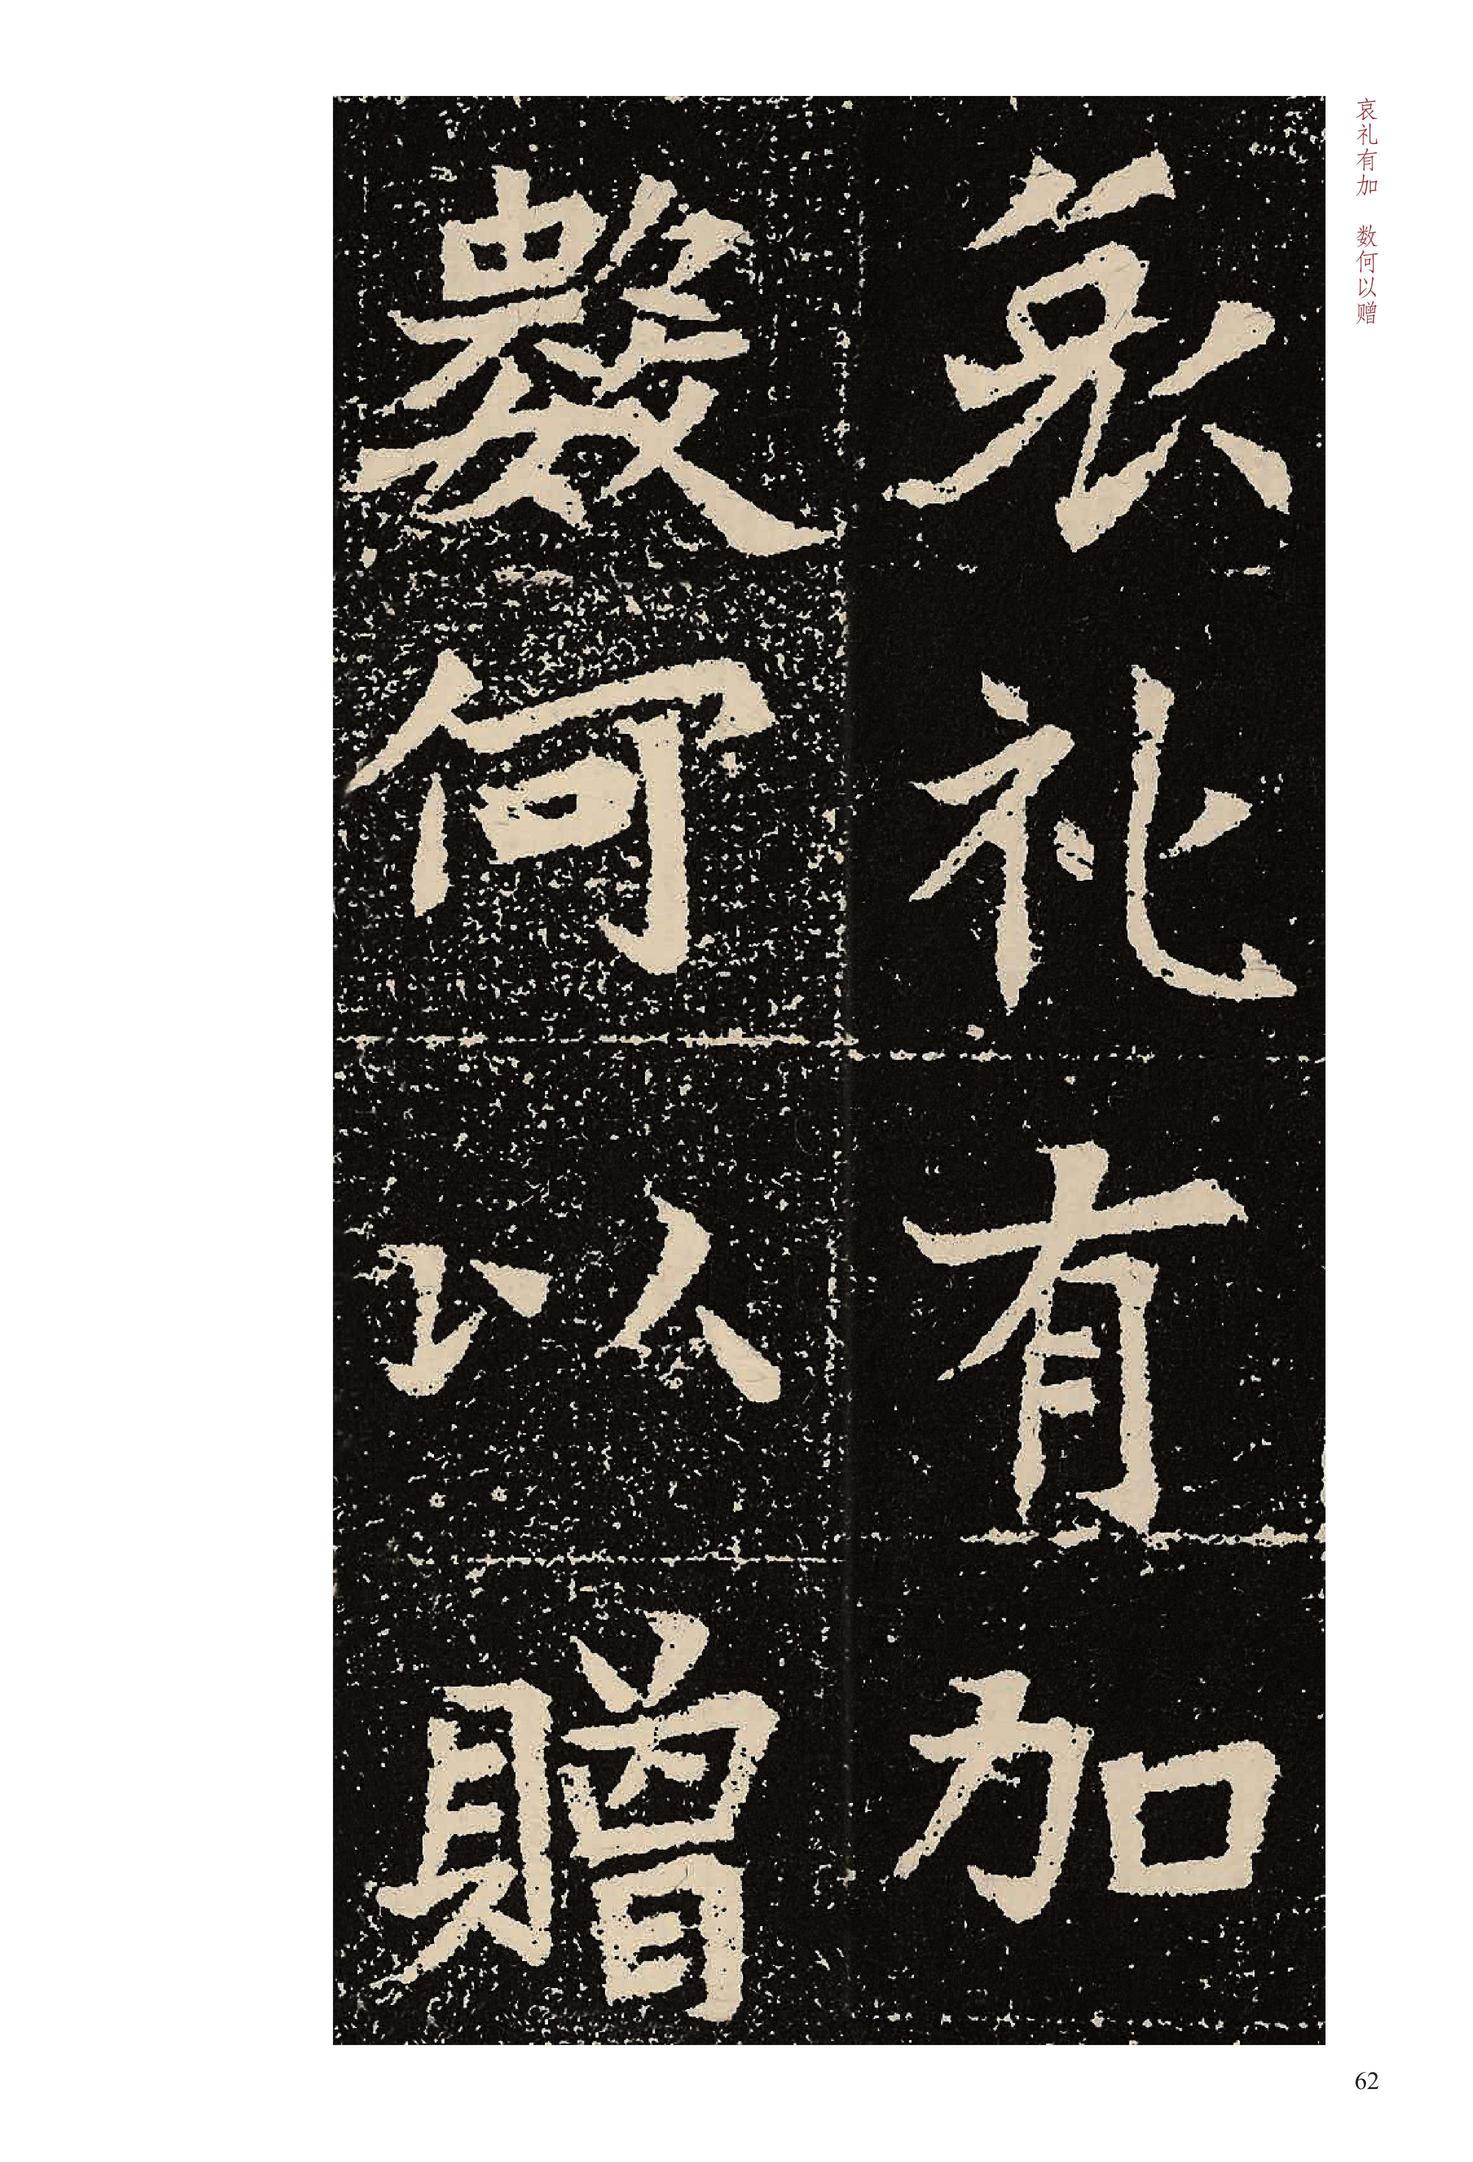 哀礼有加
數何以贈
哀礼有加　数何以赠
62